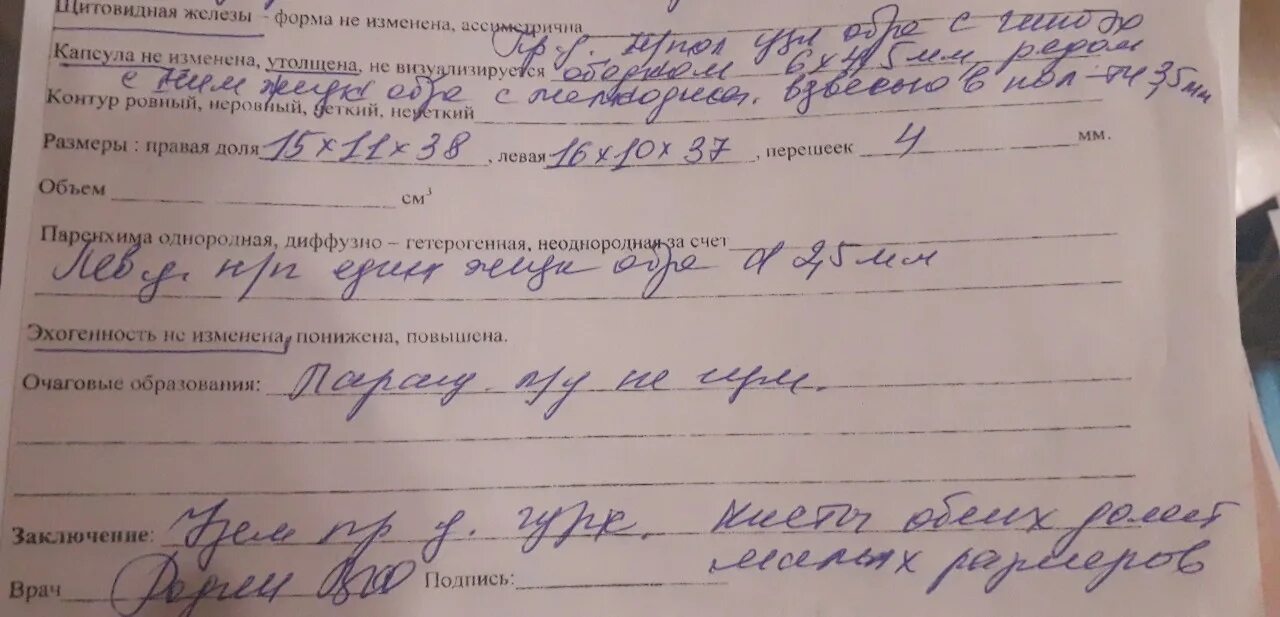 Щитовидная железы - форма не изменена, ассиметрична
пр д. в/пол узл обра с гипоэхо
Капсула не изменена, утолщена, не визуализируется ободком 6х4,5мм, рядом
с ним жидк обра с мелкодисп. взвесью в пол-ти 3,5мм
Контур ровный, неровный, четкий, нечеткий
Размеры : правая доля 15х11х38, левая 16х10х37, перешеек 4 мм.
Объем см³
Паренхима однородная, диффузно – гетерогенная, неоднородная за счет
Лев д. н/п един жидк обра d 2,5мм
Эхогенность не изменена, понижена, повышена.
Очаговые образования: Паращ. л/у не
Заключение: Узел пр д. Кисты обеих долей
малых размеров
Врач Подпись: